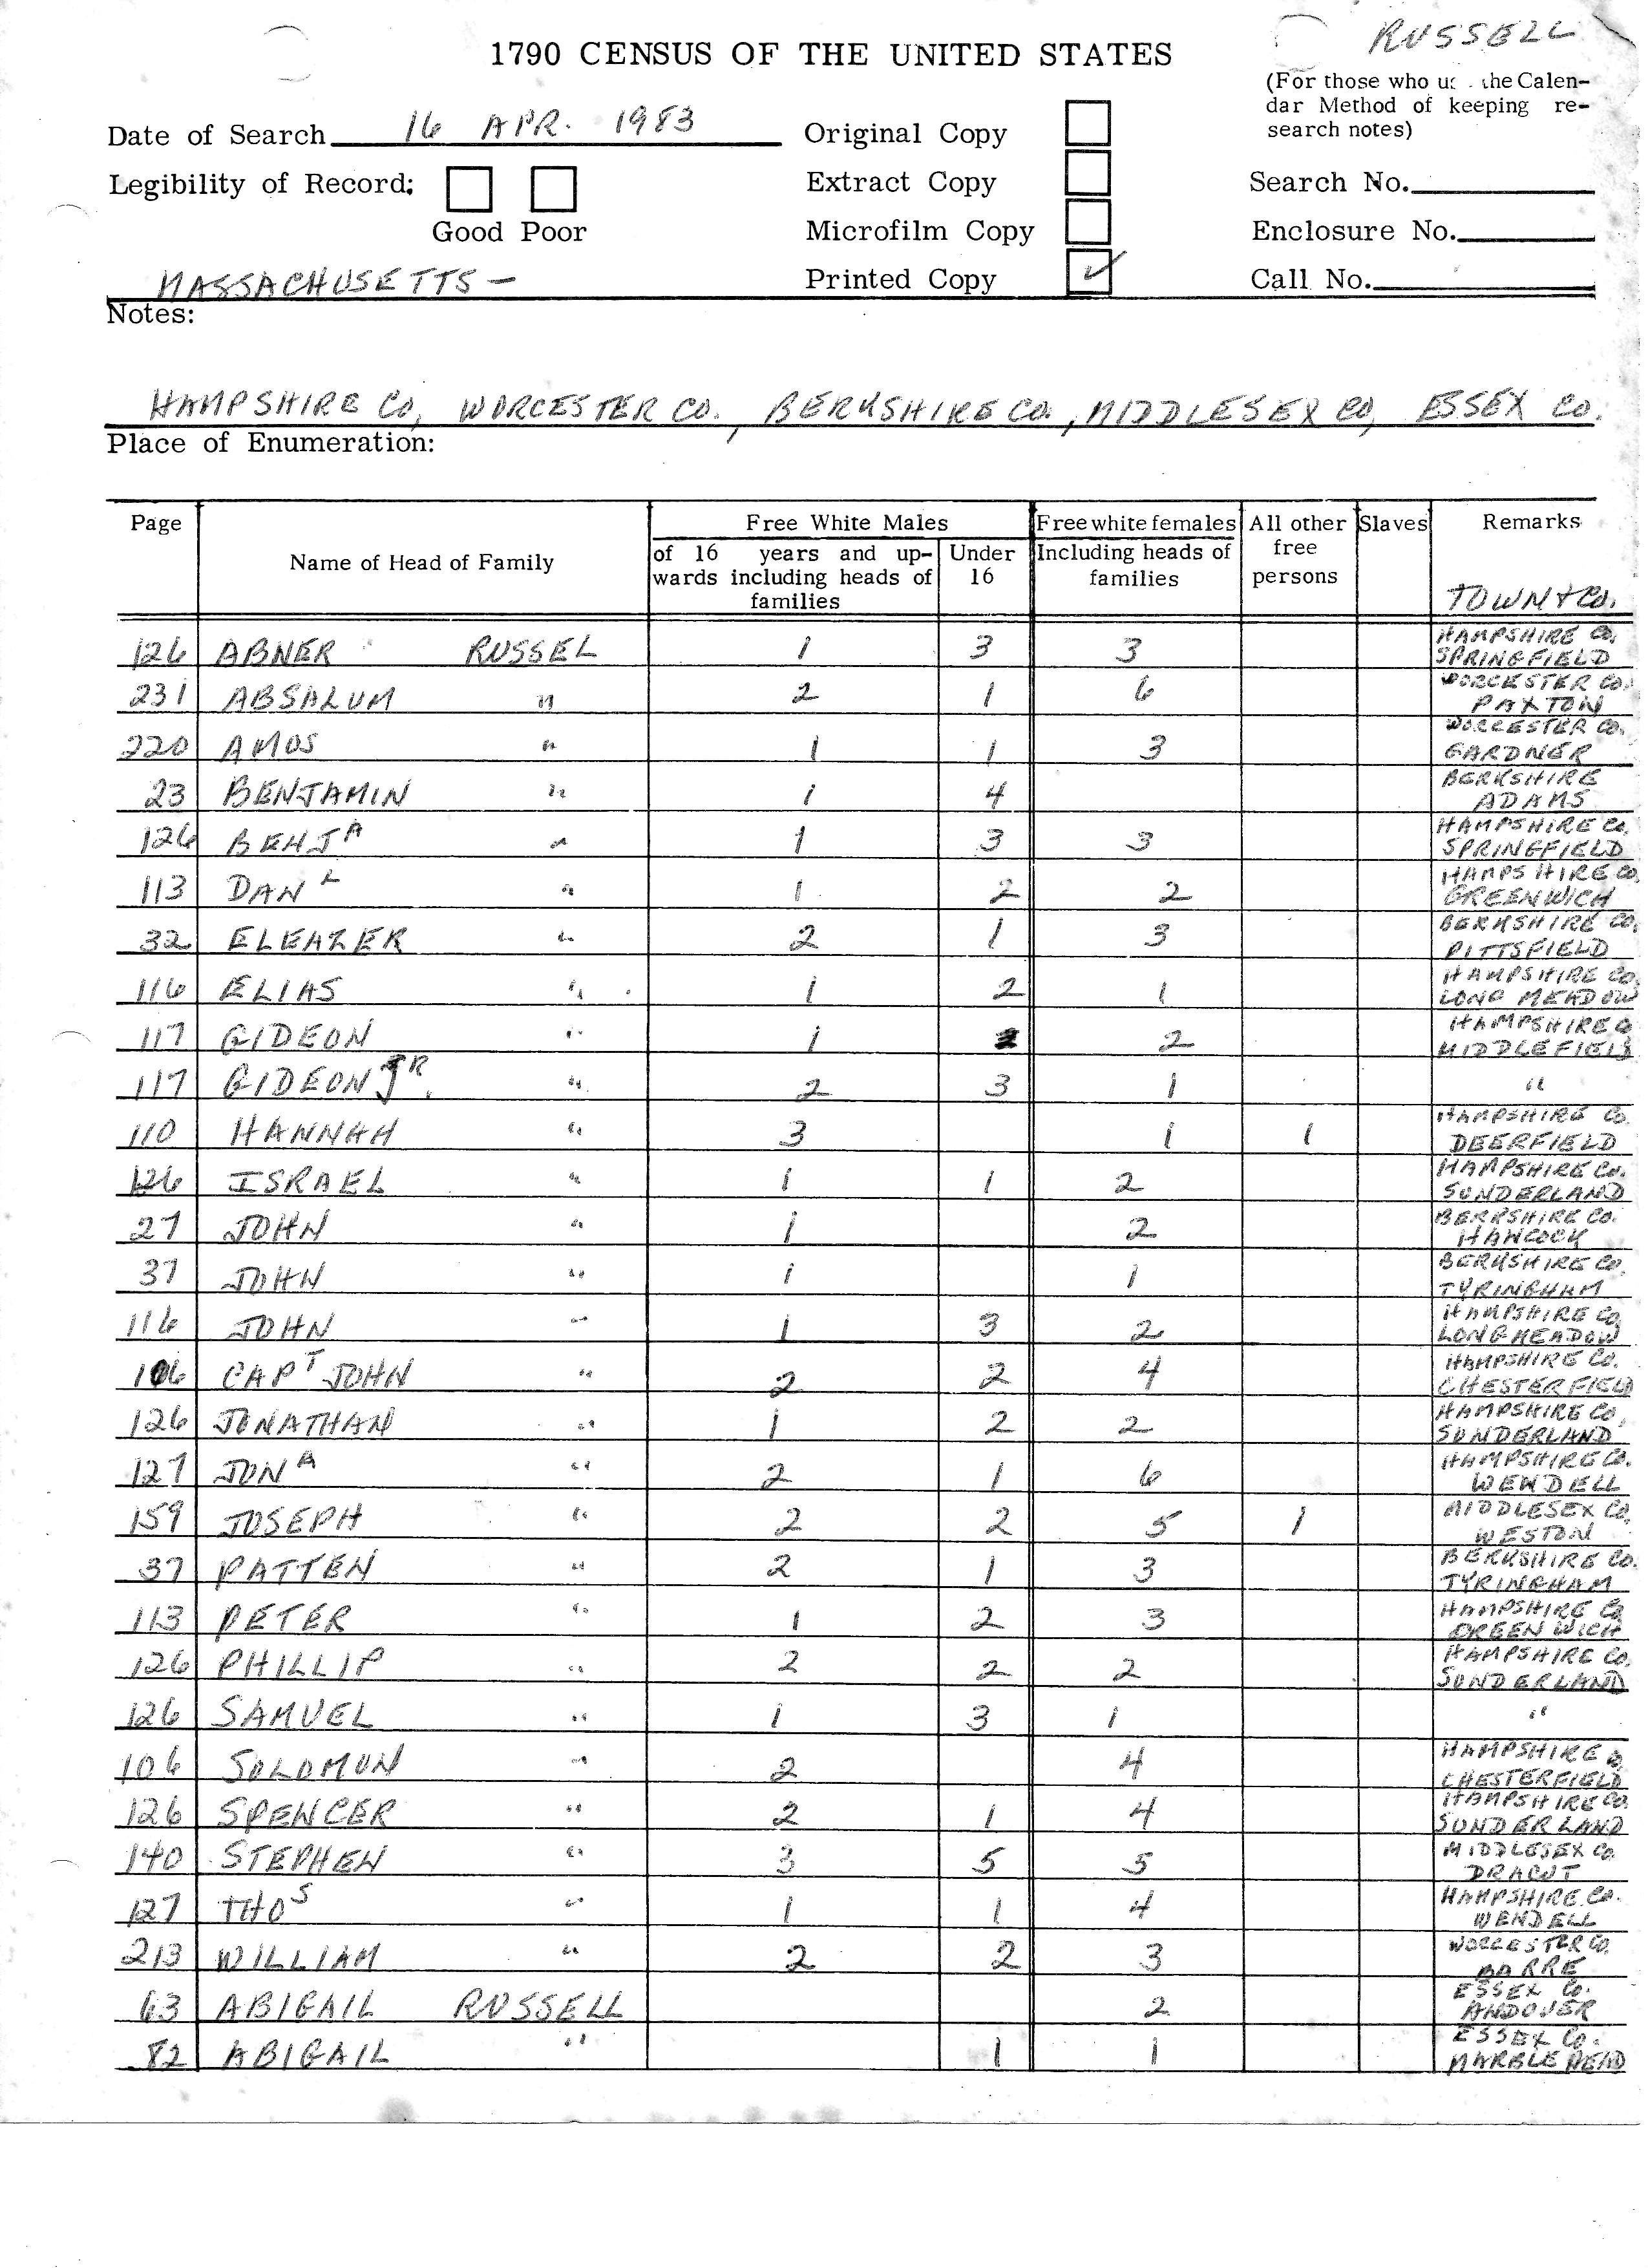 RUSSELL
1790 CENSUS OF THE UNITED STATES
(For those who use the Calen-
dar Method of keeping re-
search notes)
Date of Search 16 APR. 1983
Original Copy
Legibility of Record;
Good Poor
Extract Copy
Search No.
Microfilm Copy
Enclosure No.
MASSACHUSETTS -
Printed Copy ✓
Call No.
Notes:
HAMPSHIRE CO, WORCESTER CO., BERKSHIRE CO., MIDDLESEX CO, ESSEX CO.
Place of Enumeration:
Page Name of Head of Family Free White Males Free white females All other free persons Slaves Remarks
of 16 years and up-wards including heads of families Under 16 Including heads of families TOWN & CO.
126 ABNER RUSSEL 1 3 3 HAMPSHIRE CO, SPRINGFIELD
231 ABSALUM " 2 1 6 WORCESTER CO. PAXTON
220 AMOS " 1 1 3 WORCESTER CO. GARDNER
23 BENJAMIN " 1 4 BERKSHIRE ADAMS
126 BENJA " 1 3 3 HAMPSHIRE CO, SPRINGFIELD
113 DAN L " 1 2 2 HAMPSHIRE CO, GREENWICH
32 ELEAZER " 2 1 3 BERKSHIRE CO, PITTSFIELD
116 ELIAS " 1 2 1 HAMPSHIRE CO, LONG MEADOW
117 GIDEON " 1 2 HAMPSHIRE CO MIDDLEFIELD
117 GIDEON JR. " 2 3 1 "
110 HANNAH " 3 1 1 HAMPSHIRE CO. DEERFIELD
126 ISRAEL " 1 1 2 HAMPSHIRE CO. SUNDERLAND
27 JOHN " 1 2 BERKSHIRE CO. HANCOCK
37 JOHN " 1 1 BERKSHIRE CO, TYRINGHAM
116 JOHN " 1 3 2 HAMPSHIRE CO, LONGMEADOW
106 CAPT JOHN " 2 2 4 HAMPSHIRE CO. CHESTERFIELD
126 JONATHAN " 1 2 2 HAMPSHIRE CO, SUNDERLAND
127 JONA " 2 1 6 HAMPSHIRE CO. WENDELL
159 JOSEPH " 2 2 5 1 MIDDLESEX CO, WESTON
37 PATTEN " 2 1 3 BERKSHIRE CO. TYRINGHAM
113 PETER " 1 2 3 HAMPSHIRE CO GREENWICH
126 PHILLIP " 2 2 2 HAMPSHIRE CO, SUNDERLAND
126 SAMUEL " 1 3 1 "
106 SOLOMON " 2 4 HAMPSHIRE CO, CHESTERFIELD
126 SPENCER " 2 1 4 HAMPSHIRE CO. SUNDERLAND
140 STEPHEN " 3 5 5 MIDDLESEX CO. DRACUT
127 THOS " 1 1 4 HAMPSHIRE CO. WENDELL
213 WILLIAM " 2 2 3 WORCESTER CO, BARRE
63 ABIGAIL RUSSELL 2 ESSEX CO. ANDOVER
82 ABIGAIL " 1 1 ESSEX CO. MARBLEHEAD